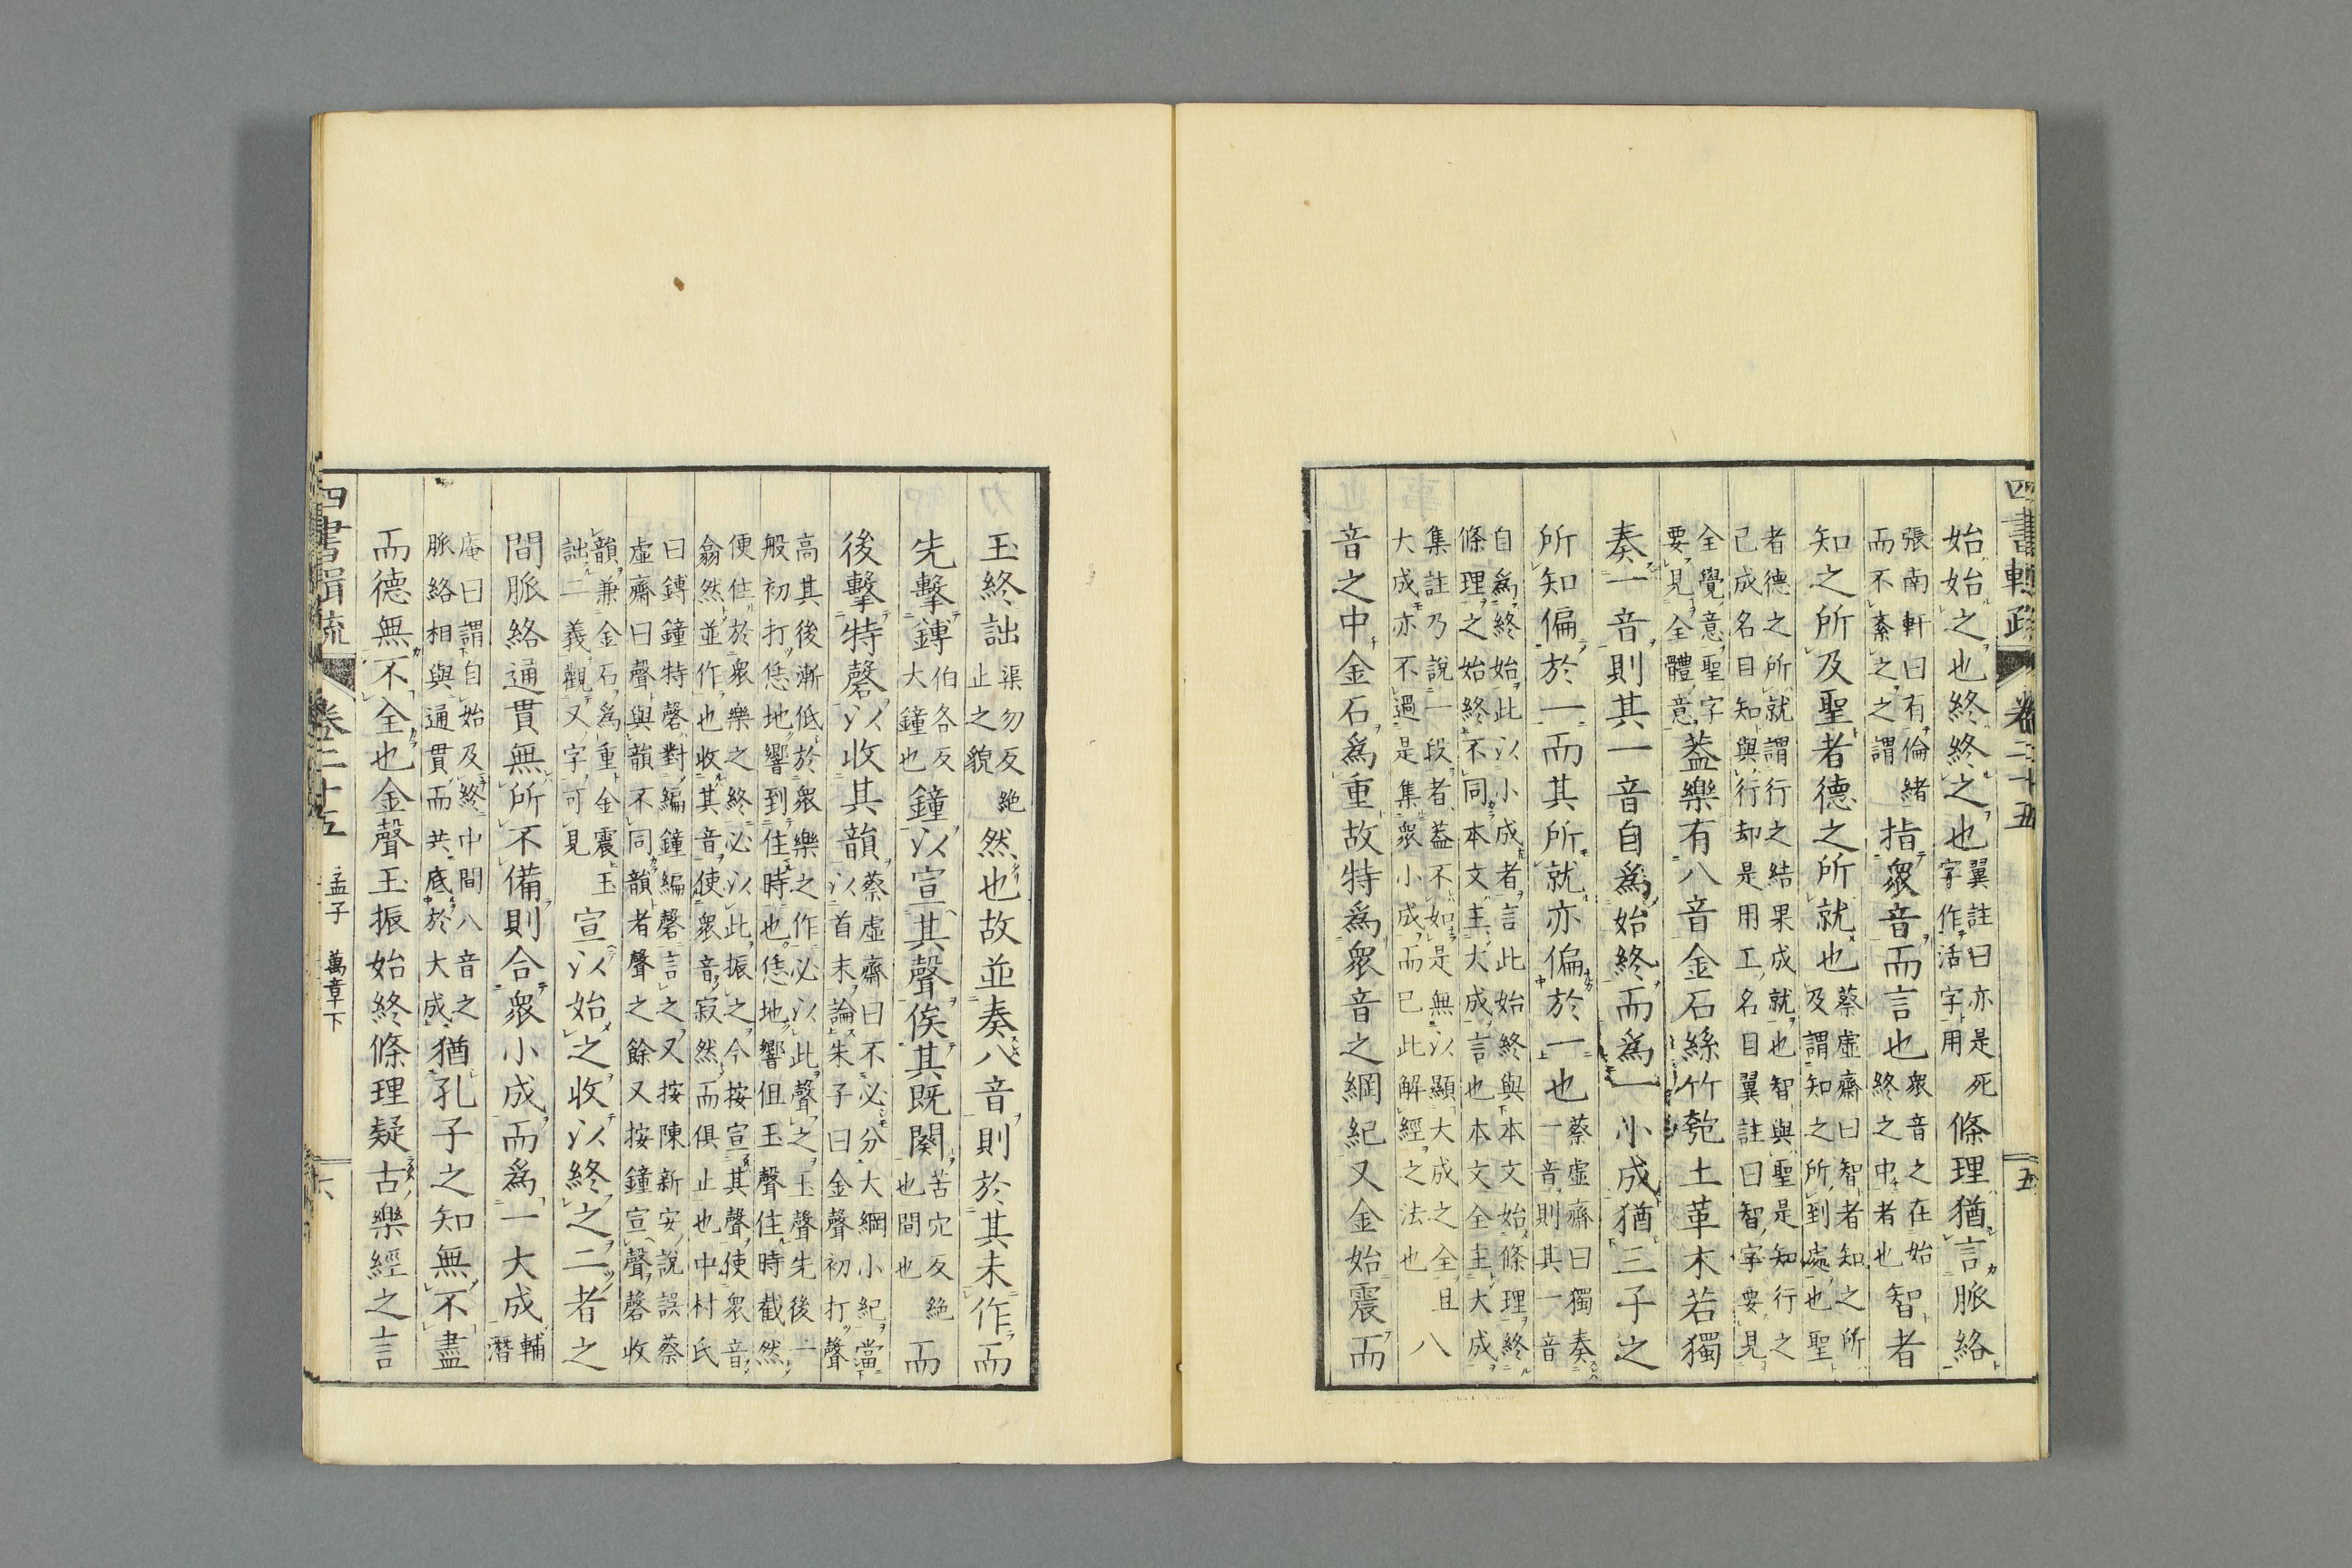 四書輯疏 卷二十五 五
始始之也終終之也
翼註曰亦是死
字作活字用
條理猶言脈絡
張南軒曰有倫緒
而不紊之之謂
指衆音而言也
衆音之在始
終之中者也
智者
知之所及聖者德之所就也
蔡虛齋曰智者知之所
及謂知之所到處也聖
者德之所就謂行之結果成就也智與聖是知行之
己成名目知與行却是用工名目翼註曰智字要見
全覺意聖字
要見全體意
蓋樂有八音金石絲竹匏土革木若獨
奏一音則其一音自爲始終而爲一小成猶三子之
所知偏於一而其所就亦偏於一也
蔡虛齋曰獨奏
一音則其一音
自爲終始此以小成者言此始終與本文始條理終
條理之始終不同本文主大成言也本文全主大成
集註乃說一段者蓋不如是無以顯大成之全且八
大成亦不過是集衆小成而已此解經之法也
音之中金石爲重故特爲衆音之綱紀又金始震而
玉終詘
渠勿反絶
止之貌
然也故並奏八音則於其未作而
先擊鎛
伯各反
大鐘也
鐘以宣其聲俟其既闋
苦穴反絶
也間也
而
後擊特磬以收其韻
蔡虛齋曰不必分大綱小紀當
以首末論朱子曰金聲初打聲
高其後漸低於衆樂之作必以此聲之玉聲先後一
般初打恁地響到住時也恁地響但玉聲住時截然
便住於衆樂之終必以此振之今按宣其聲使衆音
翕然並作也收其音使衆音寂然而俱止也中村氏
曰鎛鐘特磬對編鐘編磬言之又按陳新安說誤蔡
虛齋曰聲與韻不同韻者聲之餘又按鐘宣聲磬收
韻兼金石爲重金震玉
詘二義觀又字可見
宣以始之收以終之二者之
間脈絡通貫無所不備則合衆小成而爲一大成
輔
潛
庵曰謂自始及終中間八音之
脈絡相與通貫而共底於大成
猶孔子之知無不盡
而德無不全也金聲玉振始終條理疑古樂經之言
四書輯疏 卷二十五 孟子 萬章下 六